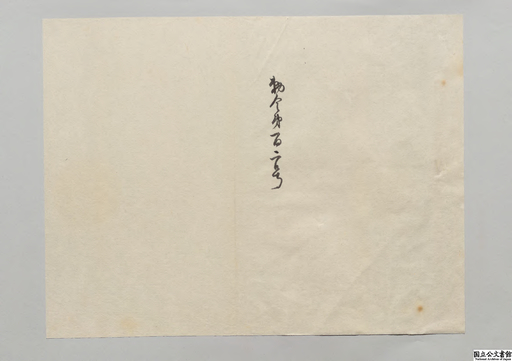 勅令第百二号
国立公文書館
National Archives of Japan